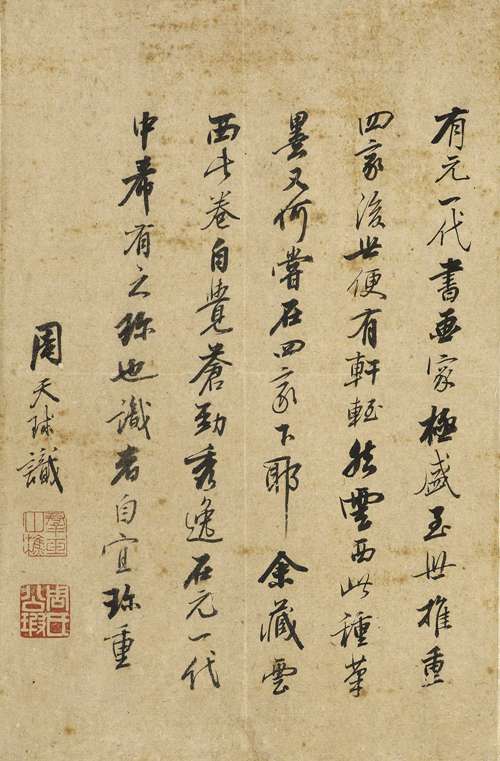 有元一代書画家極盛至世推重
四家後世便有軒輊然雲西此種筆
墨又何嘗在四家下耶余藏雲
西此卷自覺蒼勁秀逸在元一代
中希有之珍也識者自宜珍重
周天球識
群玉山樵
周氏公瑕